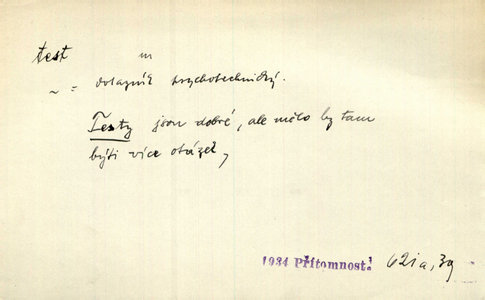 test m
~ = dotazník psychotechnický.
Testy jsou dobré, ale mělo by tam
býti více otázek,
1934 Přítomnost 621a, 39